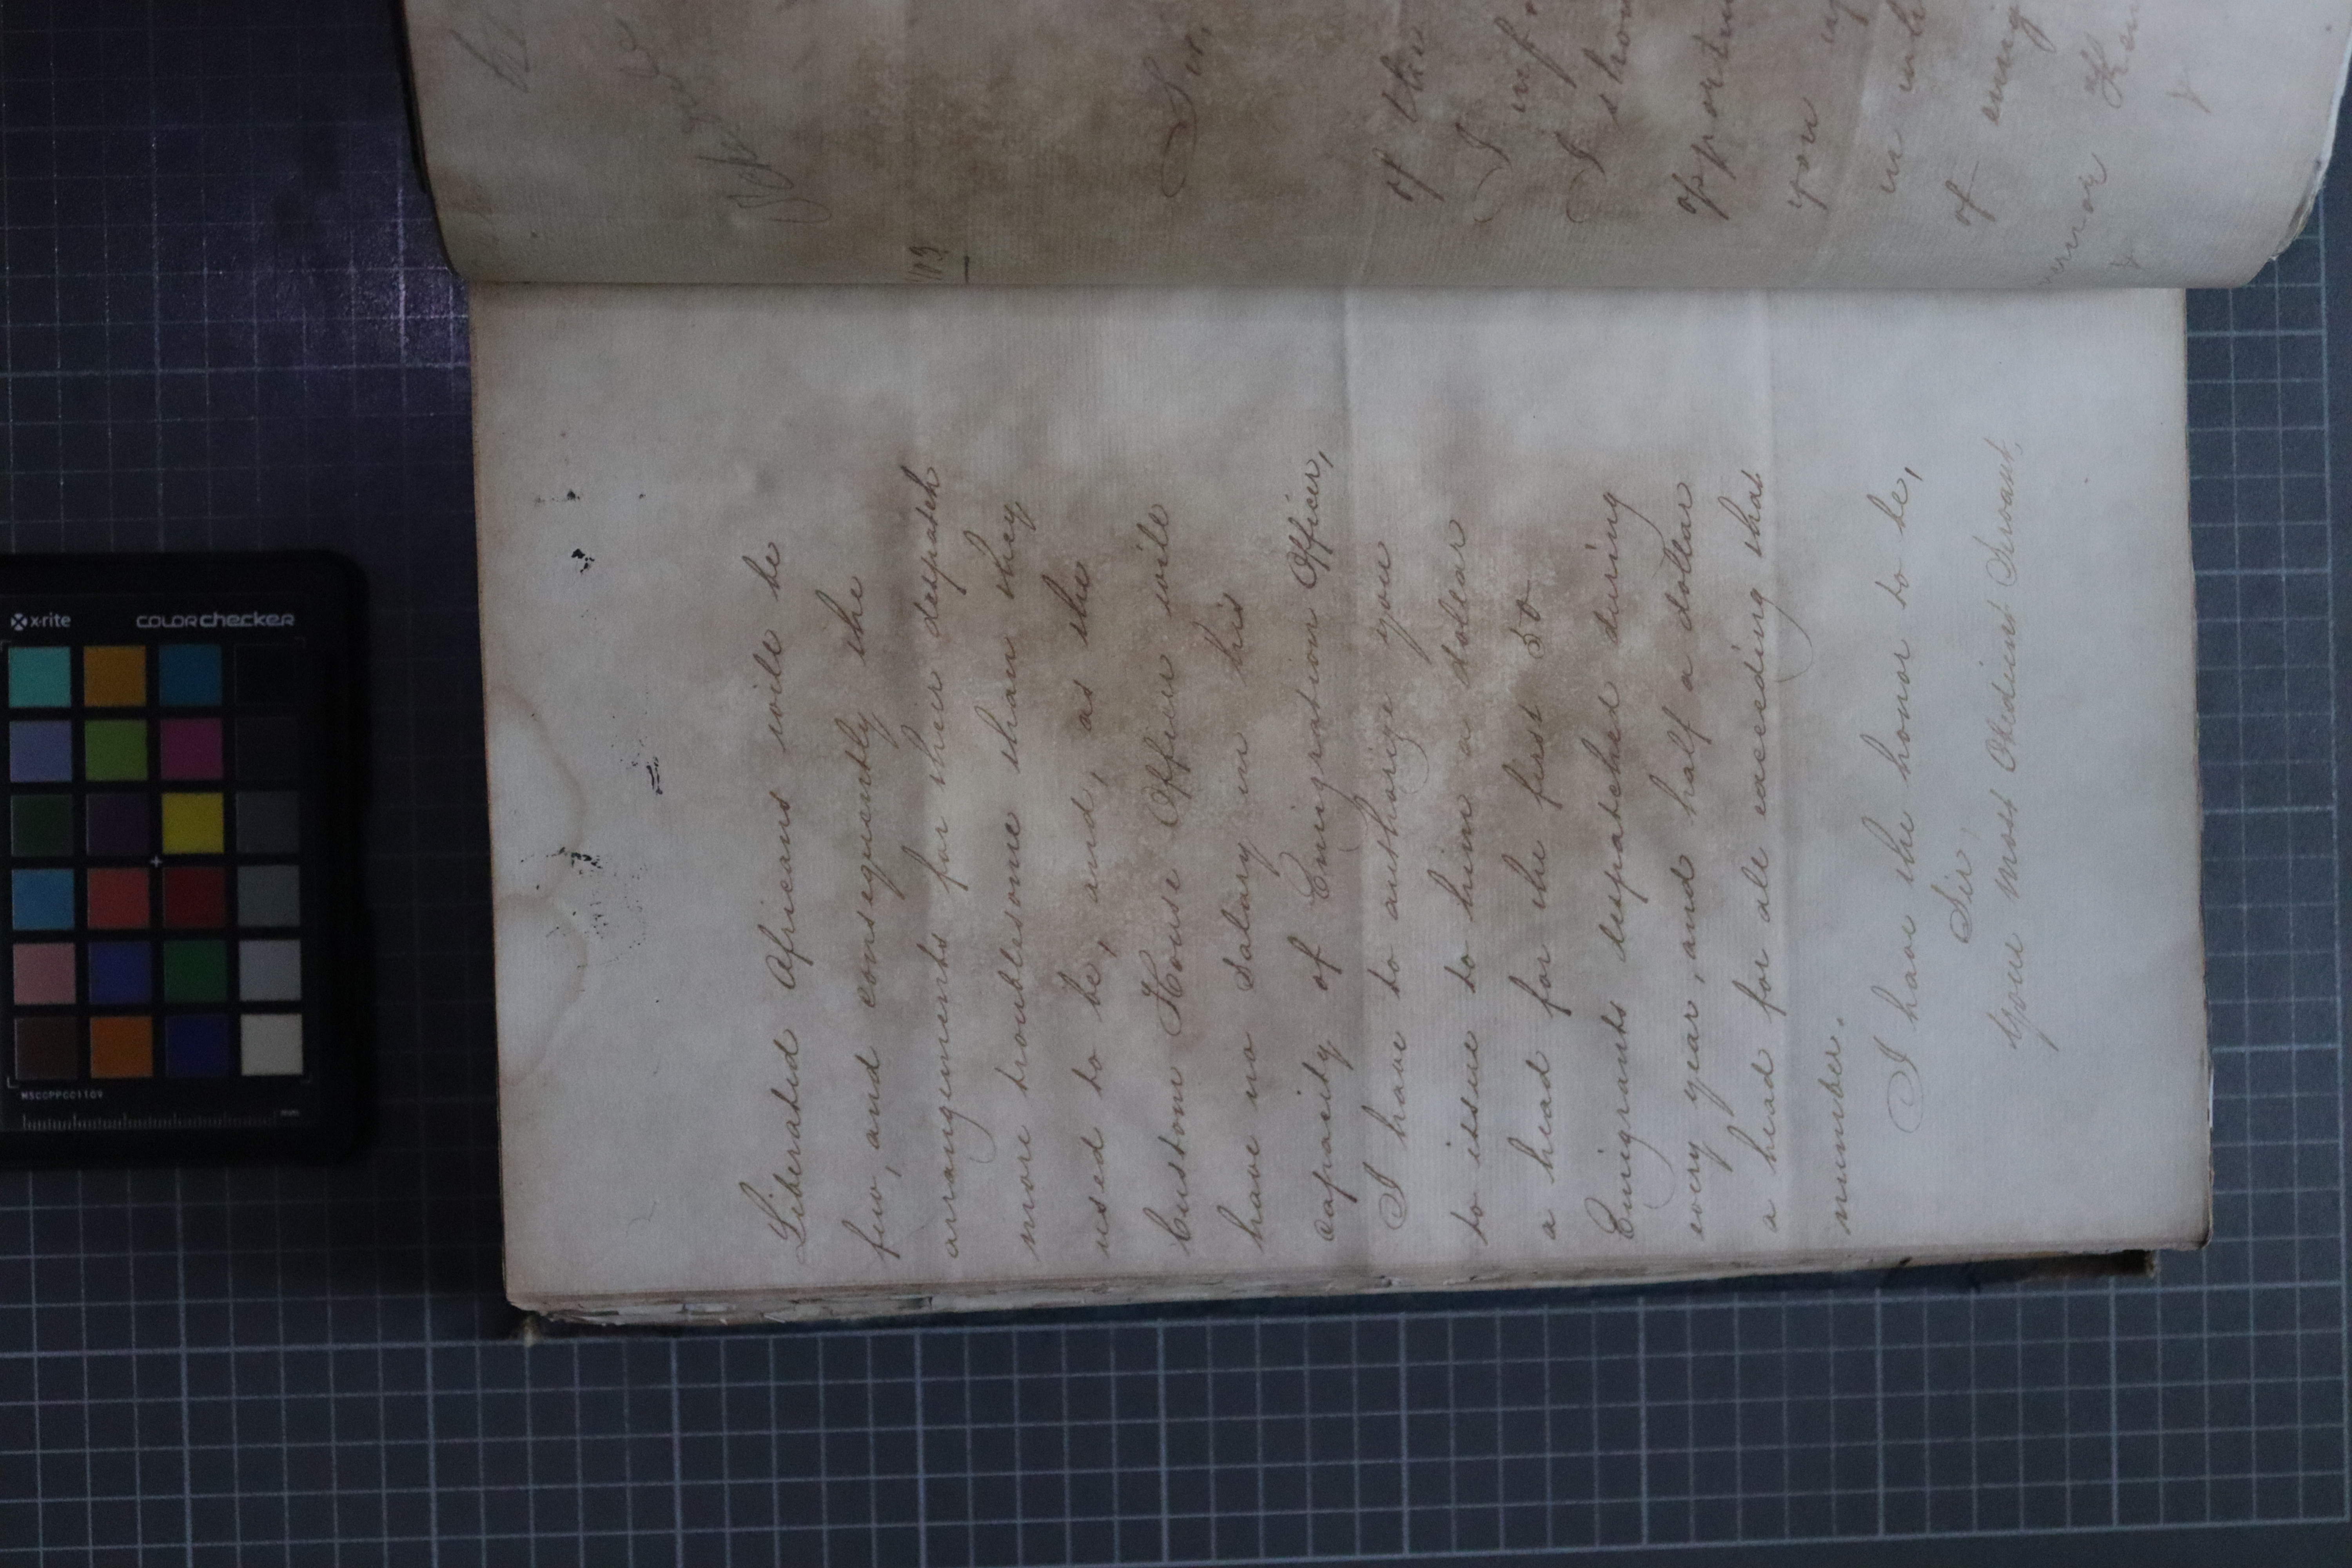 Liberated Africans will be
few, and consequently the
arrangements for their despatch
more troublesome than they
used to be, and, as the
Custom House Officer will
have no Salary in his
capacity of Emigration Officer,
I have to authorize you
to issue to him a dollar
a head for the first 50
Emigrants despatched during
every year, and half a dollar
a head for all exceeding that
number.
I have the honor to be,
Sir,
Your most Obedient Servant,
Sir,
of the
I
I
opportun
you
in
of
x-rite
colorchecker
MSCCPPCC1109